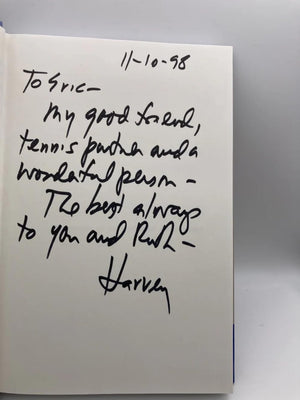 11-10-98
To Eric-
My good friend,
tennis partner and a
wonderful person-
The best always
to you and Ruth-
Harvey